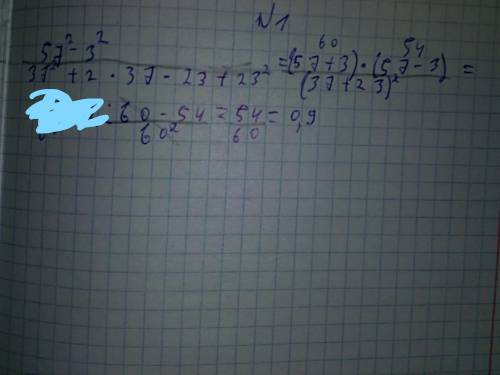 №1
57² - 3² / 37² + 2 · 37 - 23 + 23² = (57+3) · (57-3) / (37+23)² =
60 54
= 60 - 54 / 60² = 54 / 60 = 0,9